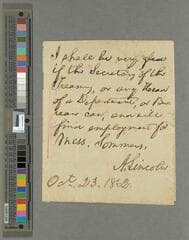 I shall be very glad
if the Secretary of the
Treasury, or any Head
of a Department, or Bu
reau can, and will
find employment for
Sommers.
A. Lincoln
Oct. 23. 1862